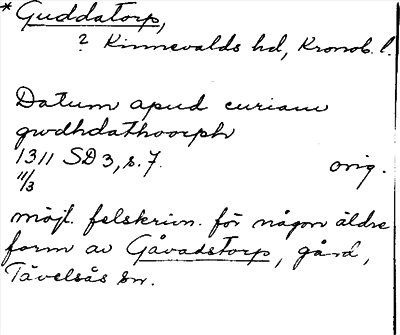 * Guddatorp,
? Kinnevalds hd, Kronob. l.
Datum apud curiam
gwdhdathoorph
1311 SD 3, s. 7. orig.
11/3
möjl. felskrivn. för någon äldre
form av Gåvadstorp, gård,
Tävelsås sn.